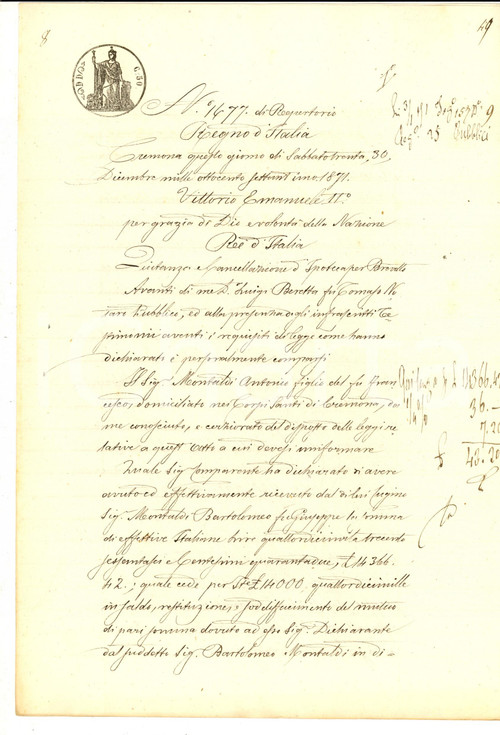 8
49
N.° 1677. di Repertorio
Regno d'Italia
Cremona questo giorno di Sabbato trenta, 30,
Dicembre mille ottocento settant'uno 1871.
Vittorio Emanuele II.°
per grazia di Dio e volontà della Nazione
Re d'Italia
Quitanza e Cancellazione d'Ipoteca per Brevetto
Avanti di me D.r Luigi Beretta fu Tomaso No-
taro Pubblico, ed alla presenza degli infrascritti Te-
stimonii aventi i requisiti di legge come hanno
dichiarato è personalmente comparso
Il Sig. Montaldi Antonio figlio del fu Fran-
cesco, domiciliato nei Corpi Santi di Cremona, da
me conosciuto, e cerziorato del disposto delle leggi re-
lative a quest'Atto a cui devesi uniformare
Quale Sig. Comparente ha dichiarato di avere
avuto ed effettivamente ricevuto dal di lui cugino
Sig. Montaldi Bartolomeo fu Giuseppe la somma
di effettive Italiane Lire quattordicimila trecento
sessantasei e Centesimi quarantadue, £ 14366.
42.; quale cede per £ 14000 quattordicimille
in saldo, restituzione, e soddisfacimento del mutuo
di pari somma dovuto ad esso Sig. Dichiarante
dal suddetto Sig. Bartolomeo Montaldi in di-
14366.42
36.—
7.20
£ 43.20